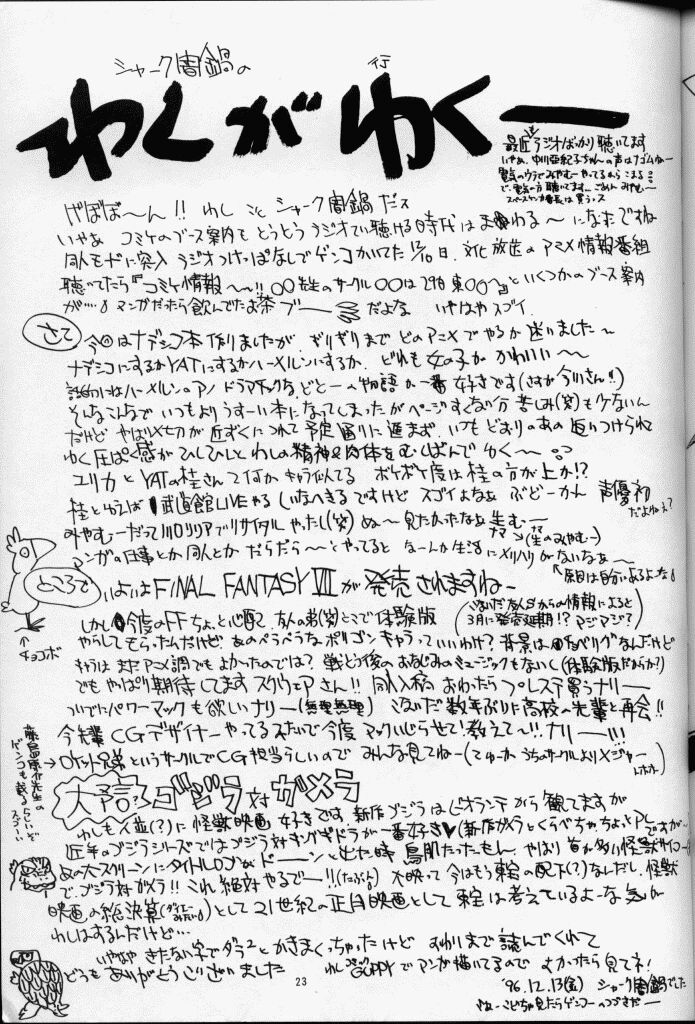 シャーク闇鍋の
行
わくがゆくー
最近ラジオばっかり聴いてます
げぼぼ〜ん!! わし こと シャーク闇鍋だス
いやぁ コミケのブース案内も とうとうラジオでい聴ける時代は まわる〜 になたですね
同人モードに突入 ラジオつけっぱなしでゲンコかいてた 12/10日、文化放送のアニメ情報番組
聴いてたら『コミケ情報〜!! 〇〇先生のサークル〇〇は29日東〇〇〜』といくつかのブース案内
が… マンガだったら飲んでたお茶 ブー だよな いやはや スゴイ
さて
今回はナデシコ本作りましたが、ギリギリまで どのアニメでやるか 迷いました〜
ナデシコにするかYATにするかハーメルンにするか、どれも女の子が かわいい〜〜
話的にはハーメルンのアノ ドラマチックな の物語が一番 好きです(さすが今川さん!!)
そんなこんなで いつもより うすーい本になってしまったが ページすくない分 苦しみ(笑)も少ないん
だけど やはり〆切が近ずくにつれて予定通りに進まず、いつもどおりのあの追いつけられ
ゆく圧ぱく感がひしひしと わしの精神&肉体を むしばんで ゆく〜
ユリカとYATの桂さんて何か キャラ似てる ボケボケ度は桂の方が上か!?
桂といえば 武道館LIVEやる しいなへきるですけど スゴイよなぁ ぶどーかん 声優初
だよねぇ?
みやむーだって川口リリアでリサイタル やったし(笑) ぬ〜 見たかったなぁ 生むー
ナマ (生のみやむー)
マンガの仕事とか同人とか だらだら〜とやってると なーんか生活にメリハリがないなぁ〜
原因は自分にあるよーな
ところで
いよいよFINAL FANTASY VIIが発売されますねー
チョコボ
しかし 今度のFF ちょっと心配 友人の弟(笑)とこで体験版
(ついだ友人Sからの情報によると
3月に発売延期!? マジ マジ?)
やらしてもらったんだけど、あのペラペラなポリゴンキャラっていいわけ? 背景は なんだけど
キャラは まだアニメ調でもよかったのでは? 戦とう後のおなじみのミュージックもないし(体験版だからか?)
でも やっぱり期待してます スクウェアさん!! 同人入稿 おわったら プレステ買うナリー
ついでにパワーマックも欲しいナリー(無理無理) 数年ぶりに高校の先輩と再会!!
今先輩 CGデザイナーやってるみたいで今度マックいじらせて! 教えて〜!! ナリー!!!
ロケット兄弟というサークルでCG担当らしいので みんな見てねー(てゆーか うちのサークルよりメジャー
藤島康介先生の
ゲンコも載るらしいぞ
スゴーい
大予言? ゴジラ対ガメラ
わしも人並(?)に怪獣映画好きです 新作ゴジラはビオランテから観てますが
近年のゴジラシリーズではゴジラ対キングギドラが一番好き♥(新作ガメラとくらべちゃちょっとアレですが…
あの大スクリーンにタイトルロゴがドーーンと出た時 鳥肌たったもん、やはり 首が多い怪獣サイコー
で、ゴジラ対ガメラ!! これ絶対やるでー!!(たぶん) 大映って今はもう東宝の配下(?)なんだし、怪獣
映画の総決算 として21世紀の正月映画として 東宝は考えているよーな気が
わしはするんだけど…
いやいや きたない字でダラ2とかきまくっちゃったけど おわりまで読んでくれて
どうもありがとうございました わし コミックGUPPYでマンガ描いてるので よかったら見てネ!
23
'96.12.13(金) シャーク闇鍋でした